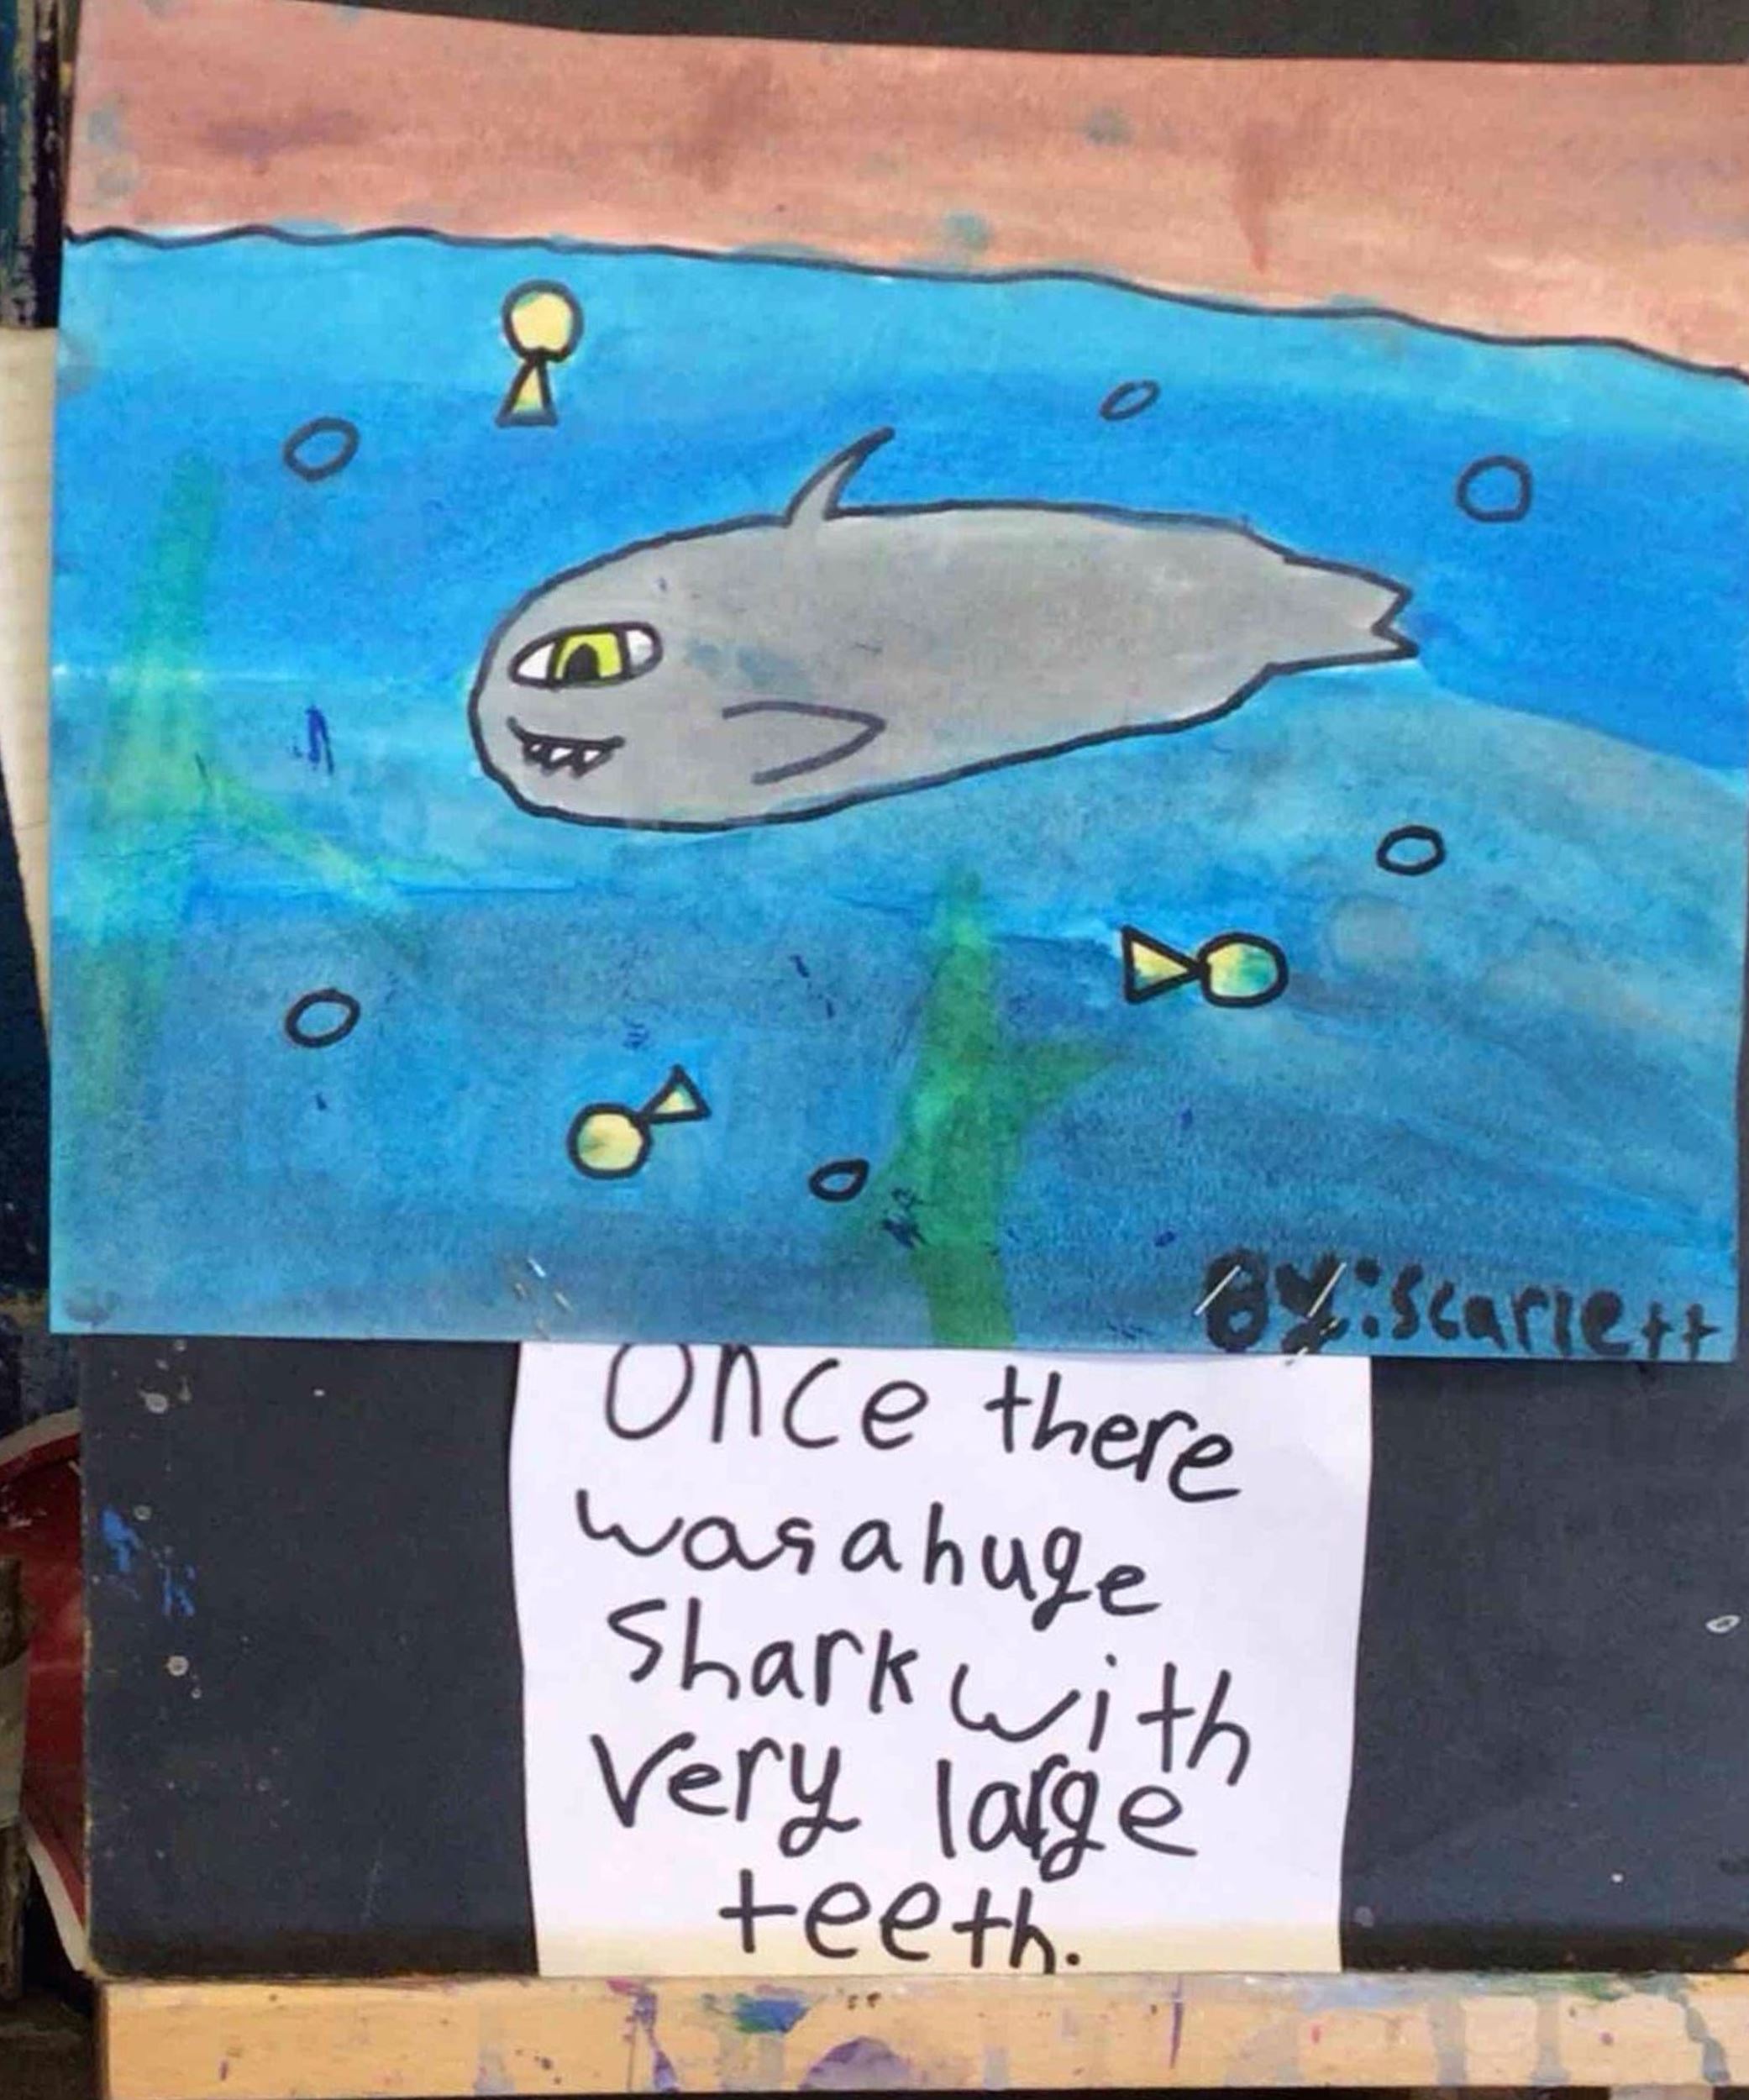 By: Scarlett
Once there
was a huge
Shark with
Very large
teeth.